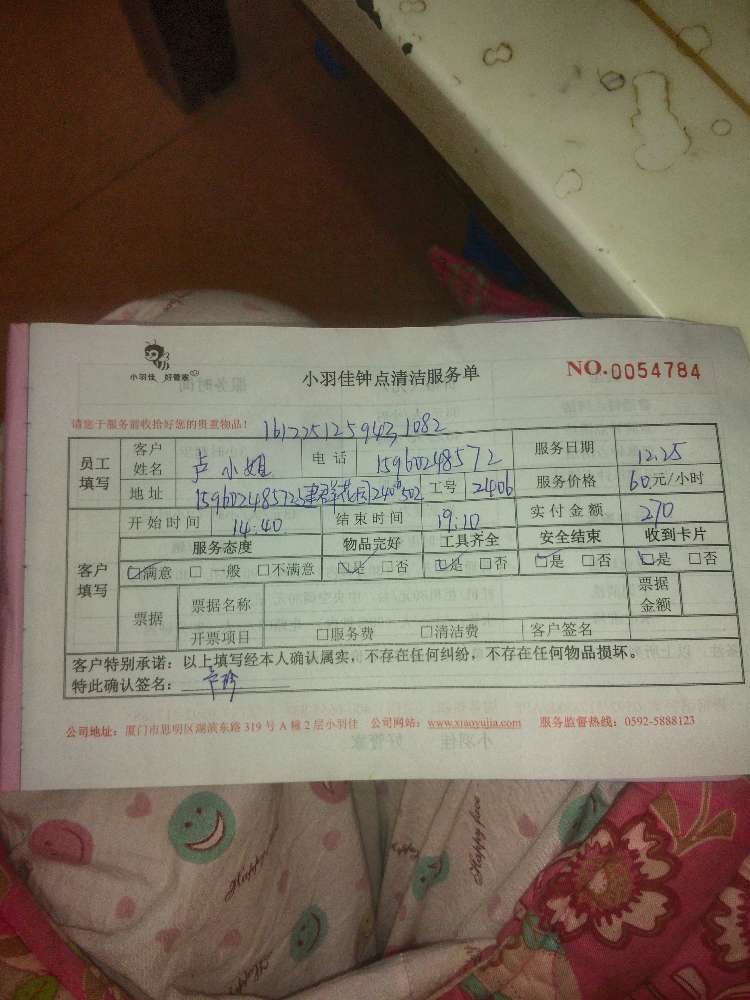 小羽佳 好管家
小羽佳钟点清洁服务单
NO.0054784
请您于服务前收拾好您的贵重物品!
161225125943,1082
员工填写 客户姓名 卢小姐 电话 15960248572 服务日期 12.25
地址 15960248572建群花园240#502 工号 2406 服务价格 60元/小时
开始时间 14:40 结束时间 19:10 实付金额 270
客户填写 服务态度 物品完好 工具齐全 安全结束 收到卡片
☑满意 □一般 □不满意 ☑是 □否 ☑是 □否 ☑是 □否 ☑是 □否
票据 票据名称 票据金额
开票项目 □服务费 □清洁费 客户签名
客户特别承诺：以上填写经本人确认属实，不存在任何纠纷，不存在任何物品损坏。
特此确认签名：
公司地址：厦门市思明区湖滨东路 319 号 A 幢 2 层小羽佳 公司网站：www.xiaoyujia.com 服务监督热线：0592-5888123
Happy face
Happy face